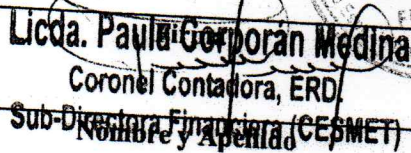 Licda. Paula Corporán Medina
Coronel Contadora, ERD.
Sub-Directora Financiera (CESMET)
Nombre y Apellido